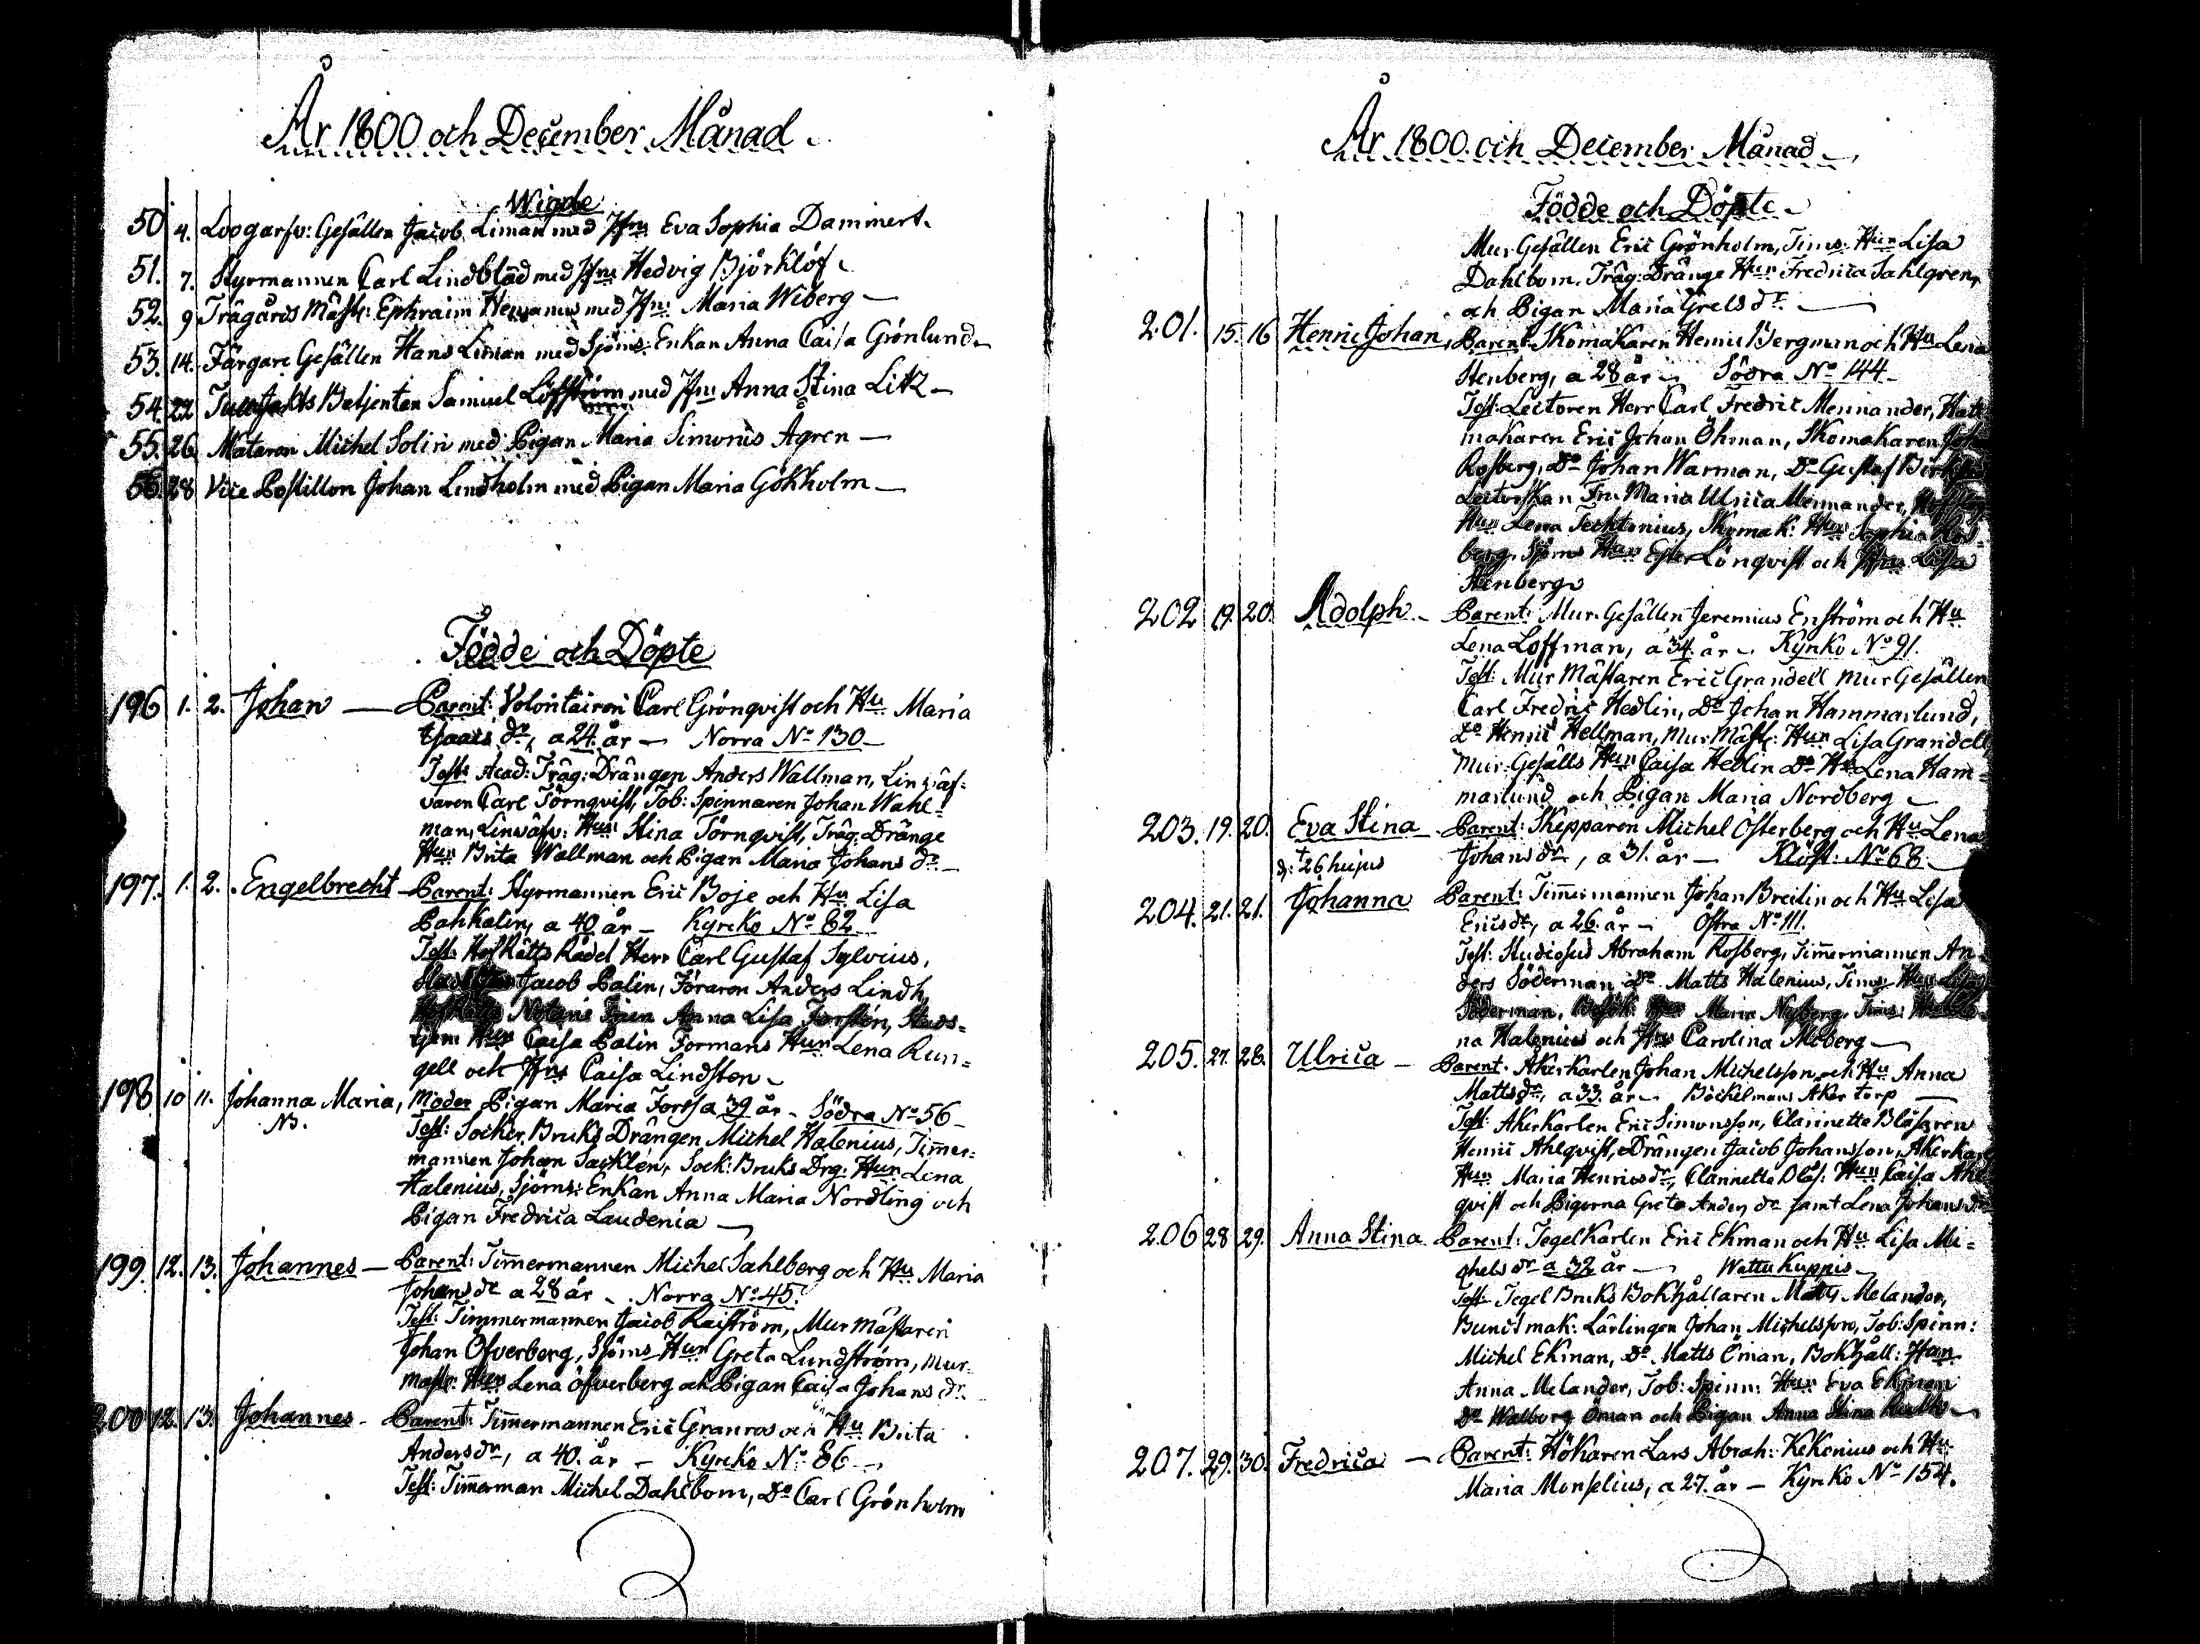 År 1800 och December Månad
Wigde
50 4. Gesällen Jacob Liman med Jfru Eva Sophia Dammert.
51. 7. Styrmannen Carl Lindblad med Jfru Hedvig Björklöf
52. 9 Trägårds Mäst: Ephraim med Jfru Maria Wiberg —
53. 14. Färgare Gesällen Hans Liman med Sjöms: Enkan Anna Caisa Grönlund
54. 22 Betjenten Samuel Löfström med Jfru Anna Stina Litz —
55. 26. Mätaren Michel Solin med Pigan Maria Simonis Ågren —
56. 28 Vice Postillon Johan Lindholm med Pigan Maria Gökholm —
Födde och Döpte
196 1. 2. Johan — Parent: Volontairen Carl Grönqvist och Hu Maria
Isaacs dr, a 24. år — Norra No 130 —
Test: Acad: Träg: Drängen Anders Wallman, Linväf-
varen Carl Törnqvist, Tob: Spinnaren Johan Wahl-
man, Linväfv: Hun Stina Törnqvist, Träg: Dränge
Hun Brita Wallman och Pigan Maria Johans dr —
197. 1. 2. Engelbrecht — Parent: Styrmannen Eric Boje och Hu Lisa
Pahkalin, a 40 år — Kyrko No 82
Test: HofRätts Rådet Herr Carl Gustaf Sylvius,
Jacob Palin, Föraren Anders Lindh,
Notarie Anna Lisa Forstén, Stads-
tjen: Hun Caisa Palin Formans Hun Lena Run-
gell och Jfru Caisa Lindsten
198 10 11. Johanna Maria, Moder Pigan Maria Forssa 39 år - Södra No 56 —
NB.
Test: Socker Bruks Drängen Michel Halenius, Timmer-
mannen Johan Sacklén, Sock: Bruks Drg: Hun Lena
Halenius, Sjöms: Enkan Anna Maria Nordling och
Pigan Fredrica Laudenia —
199. 12. 13. Johannes — Parent: Timmermannen Michel Sahlberg och Hu Maria
Johans dr a 28 år - Norra No 45.
Test: Timmermannen Jacob Raiström, Mur Mästaren
Johan Öfverberg, Sjöms Hun Greta Lundström, Mur-
mäst: Hun Lena Öfverberg och Pigan Caisa Johans dr
200 12. 13. Johannes - Parent: Timmermannen Eric Granros och Hu Brita
Anders dr, a 40. år — Kyrko No 86 —
Test: Timmerman Michel Dahlbom, Do Carl Grönholm
År 1800. och December Månad
Födde och Döpte
Mur Gesällen Eric Grönholm, Tims: Hun Lisa
Dahlbom. Träg: Dränge Hun Fredrica Sahlgren,
och Pigan Maria Grels dr —
201. 15. 16 Henric Johan, Parent: Skomakaren Henric Bergman och Hu Lena
Stenberg, a 28 år — Södra No 144 —
Test: Lectoren Herr Carl Fredric Mennander, Hatt
makaren Eric Johan Öhman, Skomakaren
Rosberg, Do Johan Warman, Do Gustaf
Lectorskan Fru Maria Ulrica Mennander,
Hun Lena Techtonius, Skomak: Hun Sophia Ros-
berg, Sjöms Hun Ester Lönqvist och Jfru Lisa
Stenberg
202 19. 20. Adolph — Parent: Mur Gesällen Jeremias Enström och Hu
Lena Loffman, a 34. år — Kyrko No 91.
Test: Mur Mästaren Eric Grandell Mur Gesällen
Carl Fredric Hedlin, Do Johan Hammarlund,
Do Henric Hellman, Mur Mäst: Hun Lisa Grandell
Mur: Gesälls Hun Caisa Hedlin Do Hun Lena Ham-
marlund och Pigan Maria Nordberg —
203. 19. 20. Eva Stina — Parent: Skepparen Michel Österberg och Hu Lena
d: 26 hujus Johans dr, a 31. år — Klöst: No 68 —
204. 21. 21. Johanna Parent: Timmermannen Johan Breilin och Hu Lisa
Erics dr, a 26 år — Östra No 111.
Test: Studiosus Abraham Rosberg, Timmermannen An-
ders Söderman Do Matts Halenius, Tims: Hun Lisa
Söderman, Maria Nyberg, Tims:
na Halenius och Carolina Moberg —
205. 27. 28. Ulrica — Parent: Åkerkarlen Johan Michelsson och Hu Anna
Matts dr, a 33. år — Böckelmans Åker torp —
Test: Åkerkarlen Eric Simonsson, Clarinette Blåsaren
Henric Ahlqvist, Drängen Jacob Johansson, Åkerkarl
Hun Maria Henrics dr, Clarinette Blås: Hun Caisa Ahl
qvist och Pigorna Greta Anders dr samt Lena Johans dr
206 28 29. Anna Stina Parent: Tegelkarlen Eric Ekman och Hu Lisa Mi-
chels dr a 32 år — Wattu Kuppis —
Test: Tegel Bruks Bokhållaren Matts Melander,
Buntmak: Lärlingen Johan Michelsson, Tob: Spinn:
Michel Ekman, Do Matts Öman, Bokhåll: Hun
Anna Melander, Tob: Spinn: Hun Eva Ekman
Do Walborg Öman och Pigan Anna Stina
207. 29. 30. Fredrica — Parent: Hökaren Lars Abrah: Kekonius och Hu
Maria Monselius, a 27. år — Kyrko No 154.